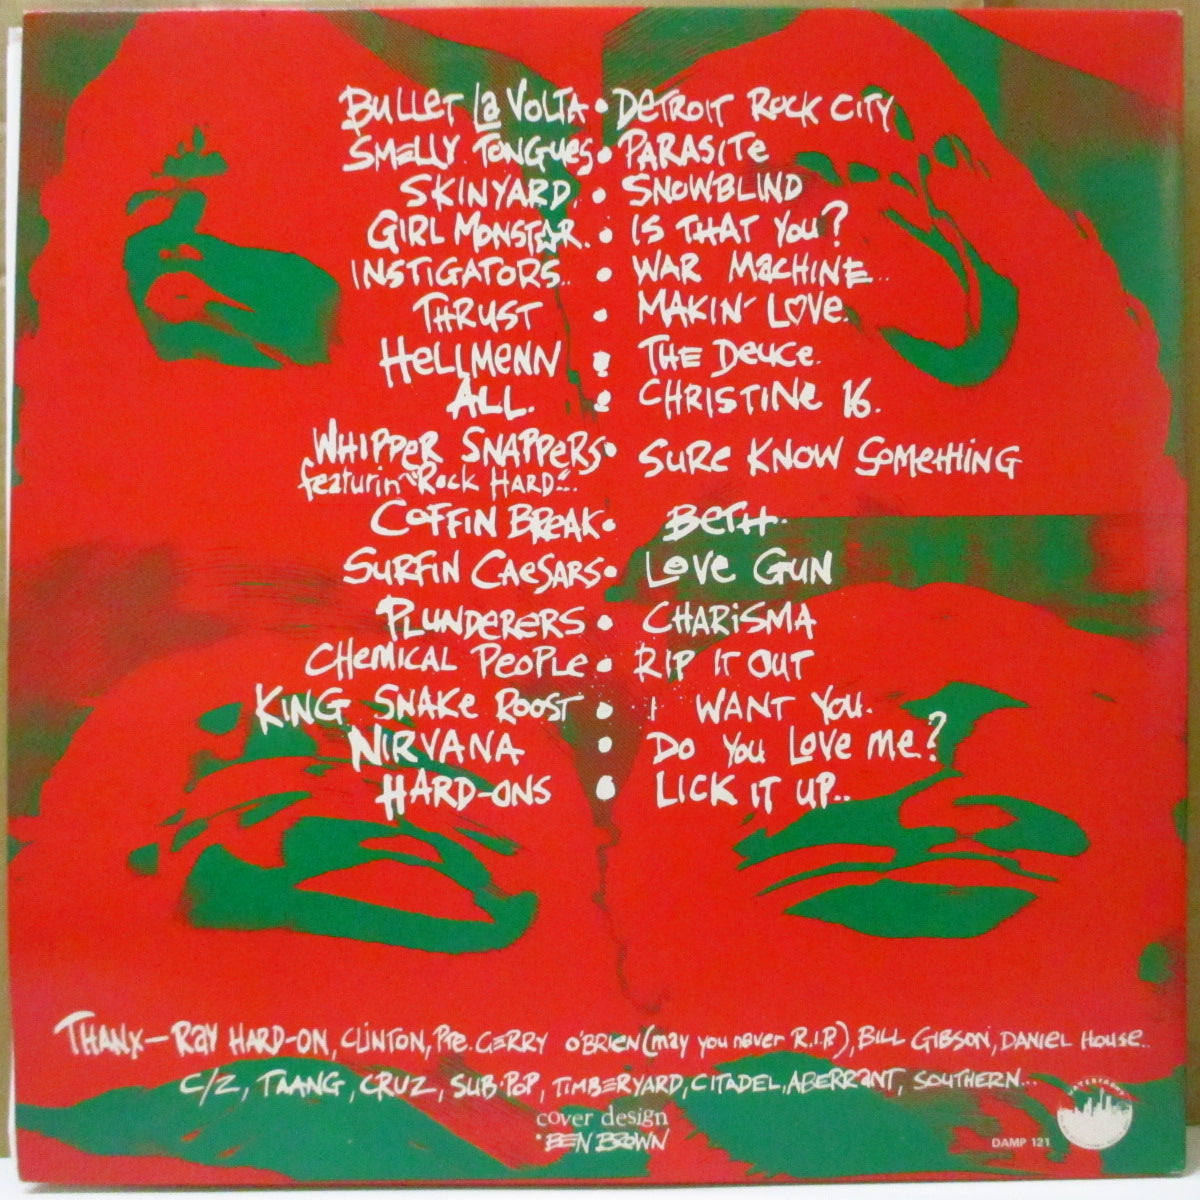 BULLET La VOLTA • DETROIT ROCK CITY
SMELLY TONGUES • PARASITE
SKINYARD. • SNOWBLIND
GIRL MONSTAR. • IS THAT YOU?
INSTIGATORS.. • WAR MACHINE..
THRUST • MAKIN' LOVE.
HELLMENN • THE DEUCE.
ALL. • CHRISTINE 16.
WHIPPER SNAPPERS • SURE KNOW SOMETHING
featurin "ROCK HARD"..
COFFIN BREAK • BETH.
SURFIN CAESARS • LOVE GUN
PLUNDERERS • CHARISMA
CHEMICAL PEOPLE • RIP IT OUT
KING SNAKE ROOST • I WANT YOU.
NIRVANA • DO YOU LOVE ME?
HARD-ONS • LICK IT UP..
THANX—RAY HARD-ON, CLINTON, Pte. GERRY O'BRIEN (may you never R.I.P.), BILL GIBSON, DANIEL HOUSE..
C/Z, TAANG, CRUZ, SUB·POP, TIMBERYARD, CITADEL, ABERRANT, SOUTHERN...
cover design
'BEN BROWN'
DAMP 121
WATERFRONT